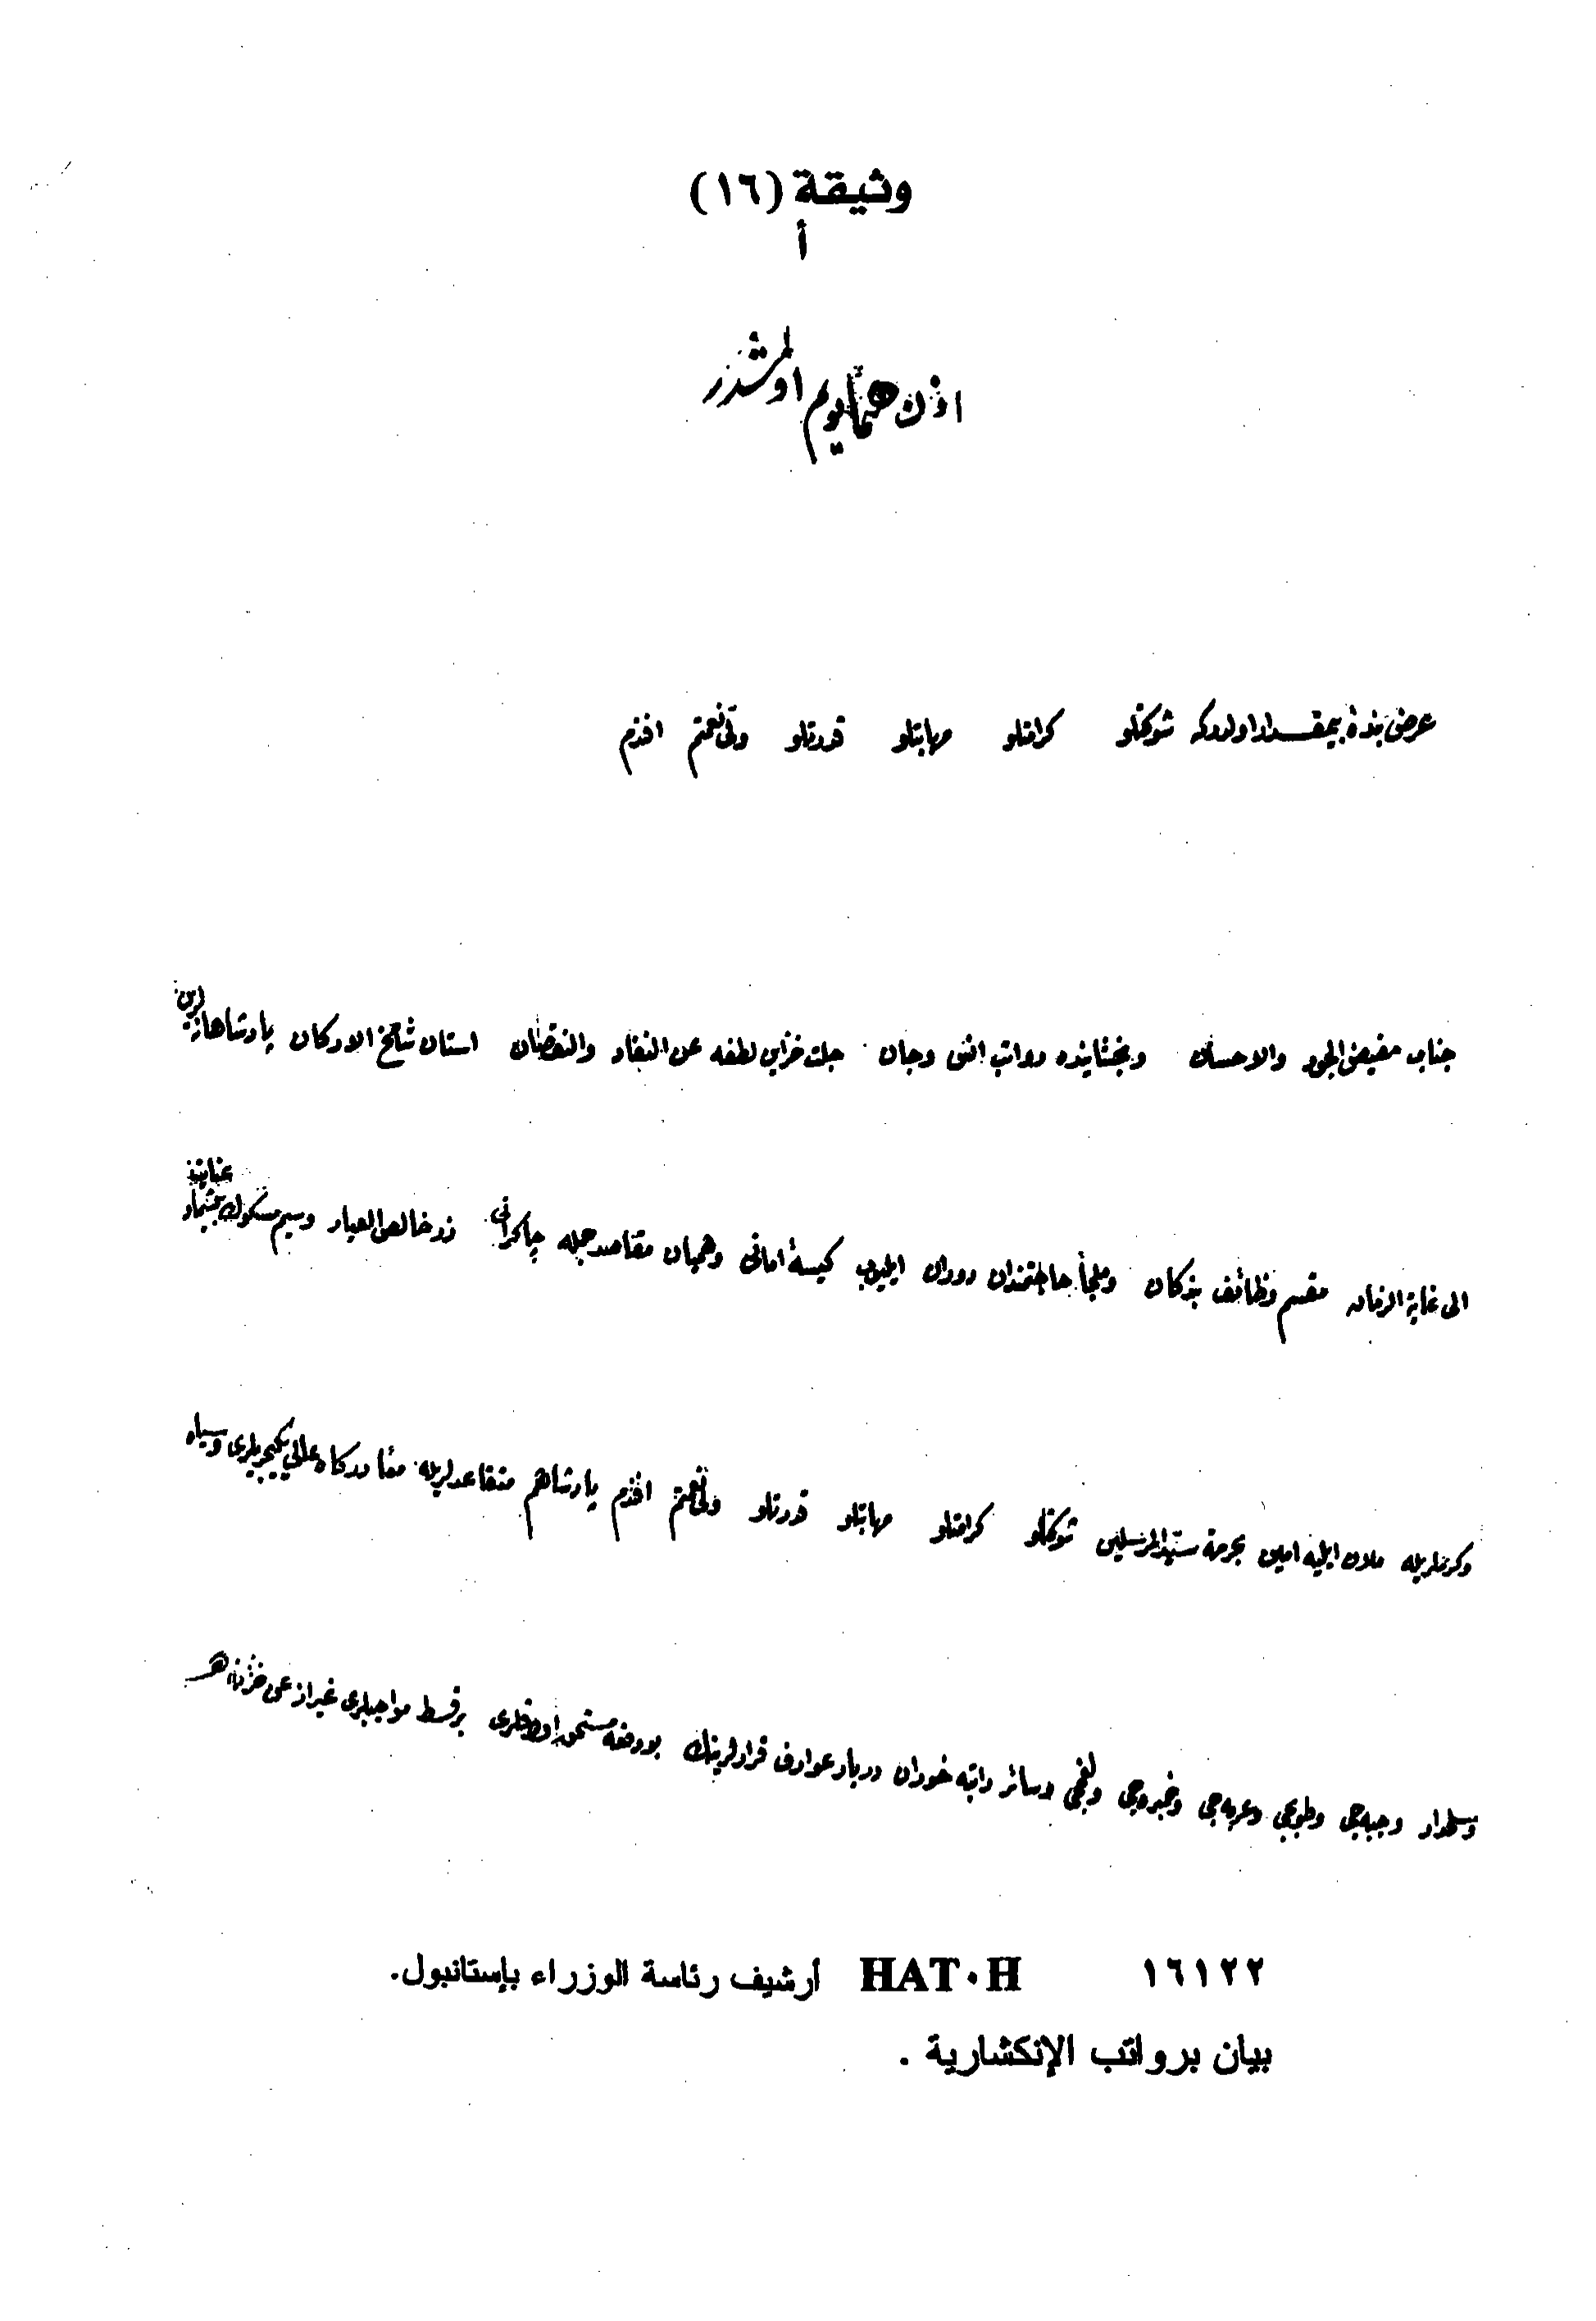 وثيقة (١٦)
أ
اذن همايونم اولمشدر
عرض بندۀ بيمقدار اولدر كه شوكتلو كرامتلو مهابتلو قدرتلو ولى نعمتم افندم
جناب مفيض الجود والاحسان وبخشاينده رواتب انس وجان جلت خزاين لطفه عن النفاد والنقصان استان شامخ الاركان پادشاهانه لرين
الى غاية الزمان مقسم وظائف بندكان وملجأ حاجتمندان دوران ايليوب كيسۀ امانى وهميان مقاصد جمله چاكرانى زر خالص العيار وسيم مسكوك بيشمار عنايت
وكرملريله ملان ايليه امين بحرمة سيد المرسلين شوكتلو كرامتلو مهابتلو قدرتلو ولى نعمتم افندم پادشاهم متقاعدلريله معا دركاه عالى يكيچريلرى وسپاه
وسلحدار وجبه جى وطوپجى وعربه جى وخمبره جى ولغمجى وسائر راتبه خوران دربار عوارف قرارلرينك بو دفعه مستحق اولدقلرى بر قسط مواجبلرى غير از عن خزينه هر
١٦١٢٢ HAT·H أرشيف رئاسة الوزراء بإستانبول.
بيان برواتب الإنكشارية .